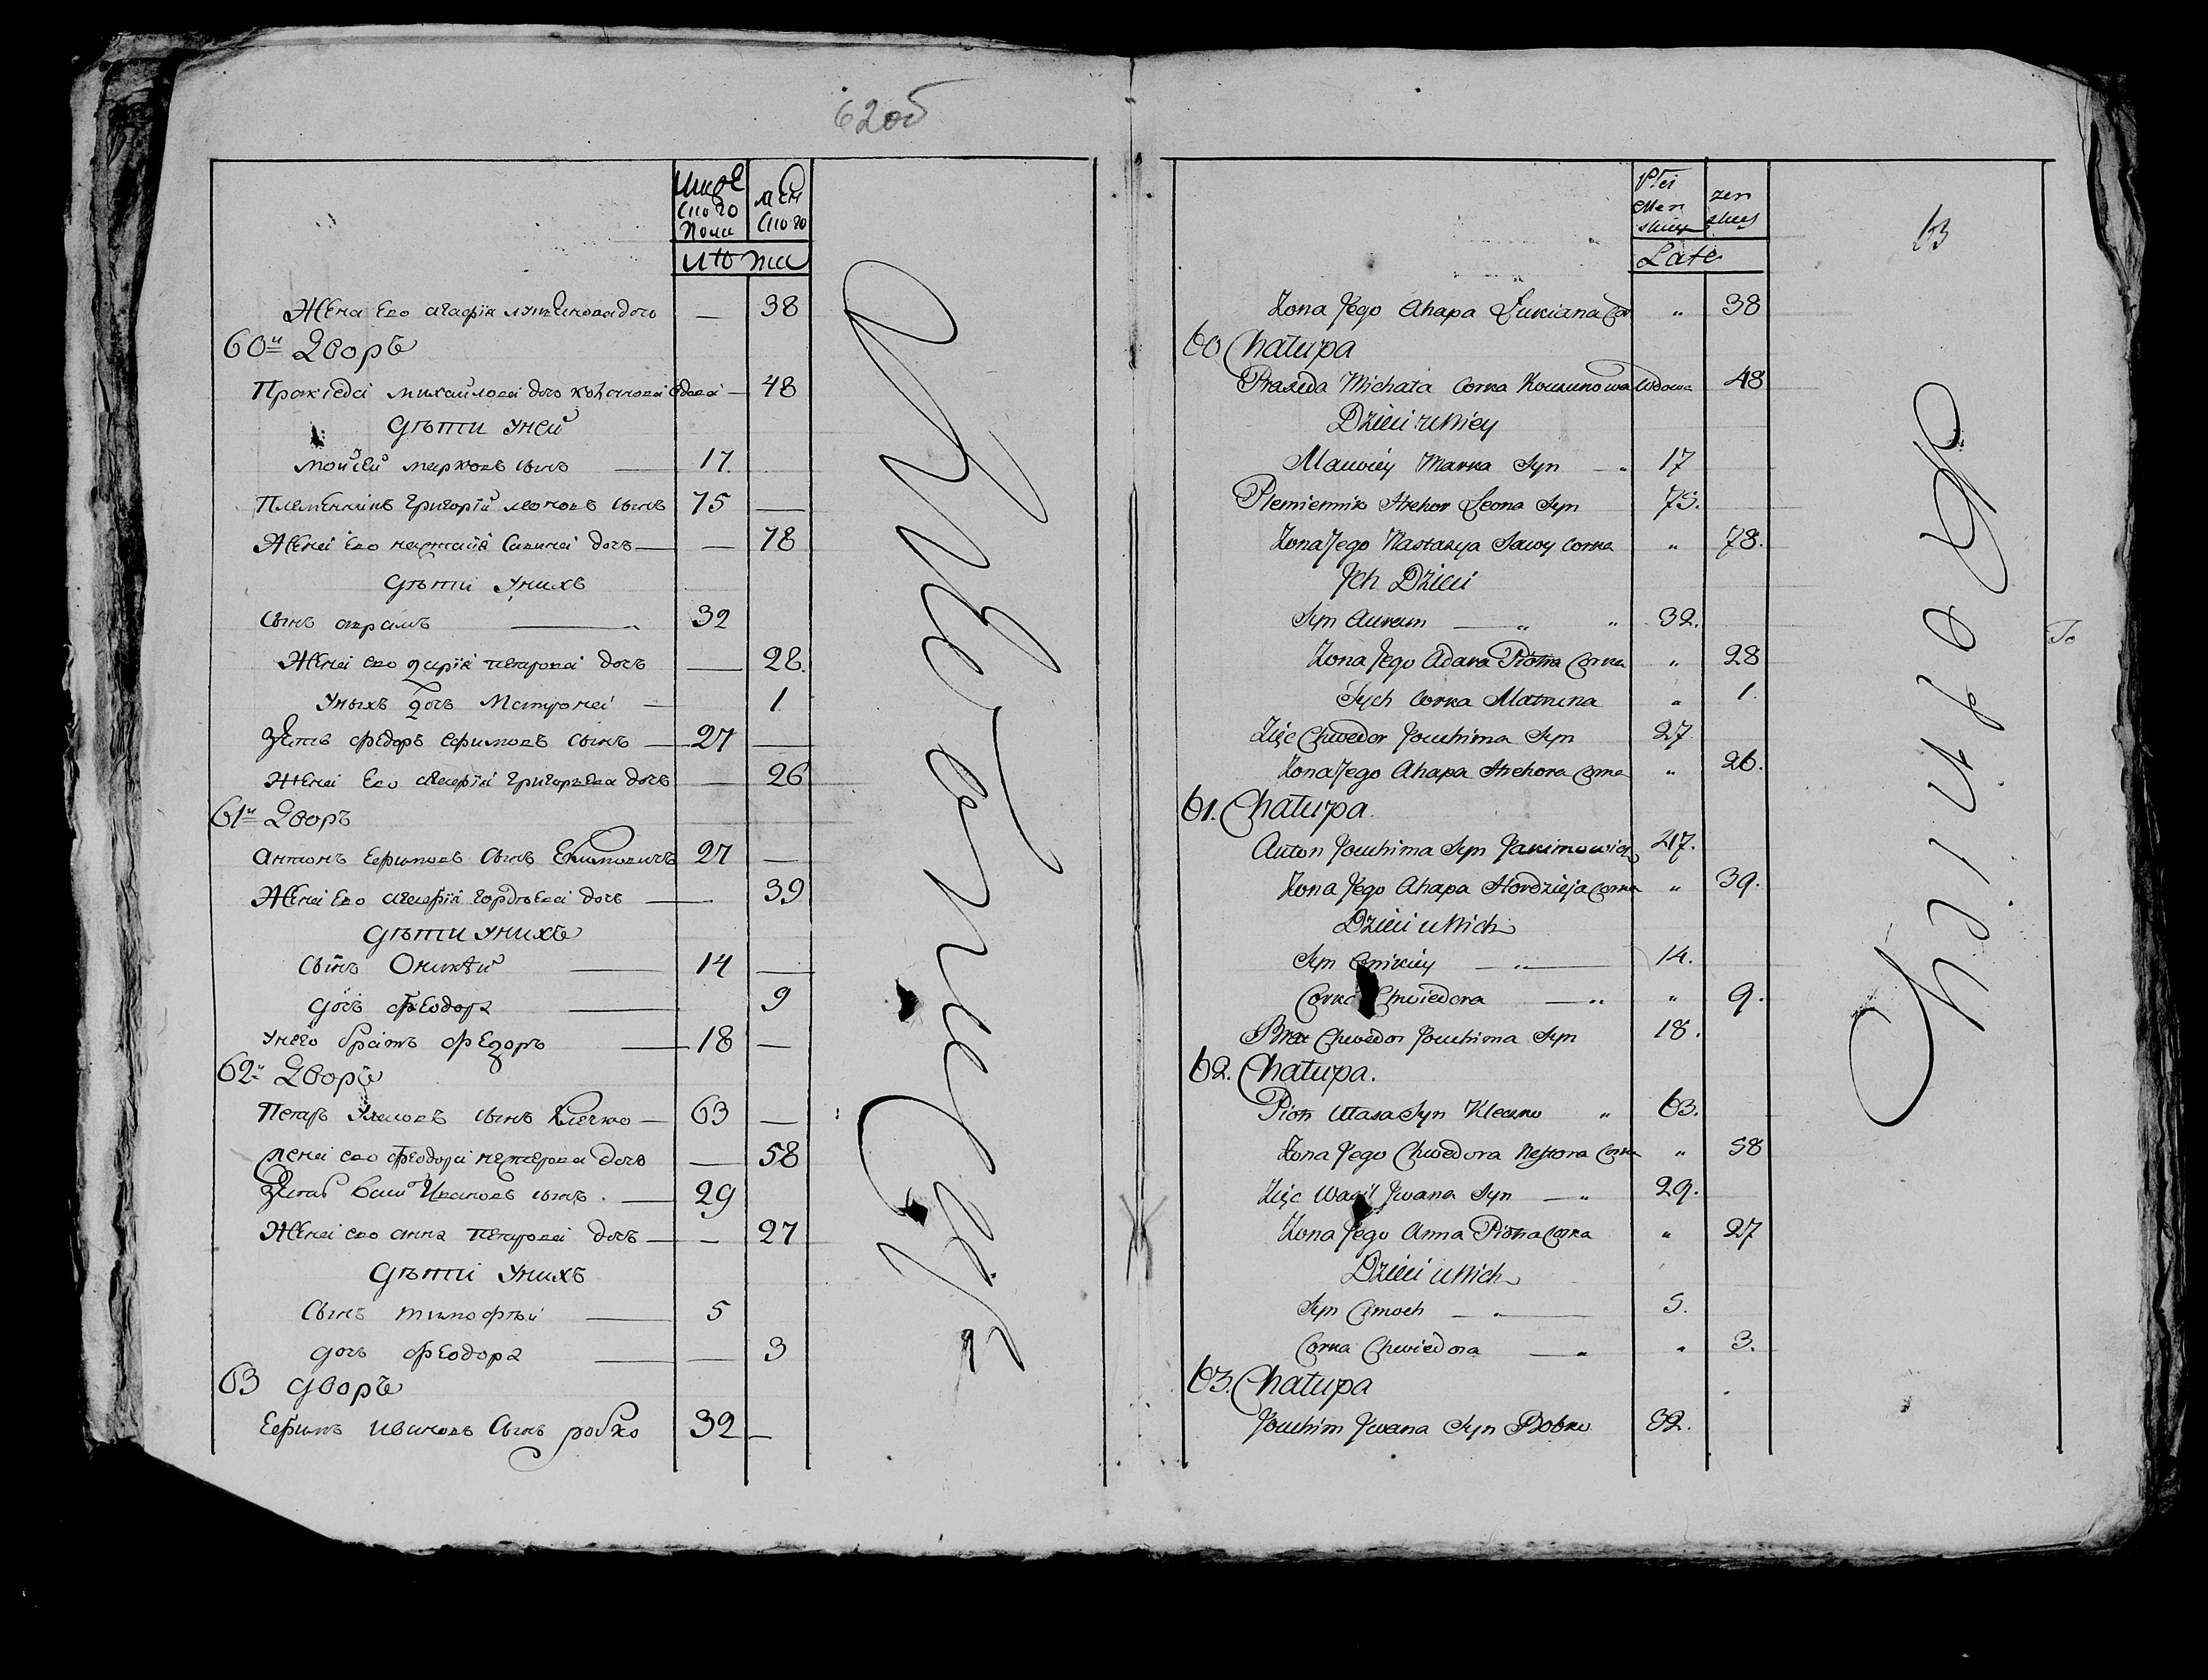 62об
мужескаго пола
женскаго
лѣта
Жена Ево агафія лукіянова дочь — 38
60й Дворъ
Праксѣда михайлова дочь вдова — 48
Дѣти Унеи
мойсей марковъ сынъ — 17
Племенникъ григорій леоновъ сынъ 75 —
Жена Ево настасія савина дочь — 78
Дѣти Унихъ
сынъ аврамъ — 32
Жена ево дарія петрова дочь — 28
Унихъ дочь Матрона — 1
Зять федоръ ефимовъ сынъ — 27 —
Жена Ево агафія григорьева дочь — 26
61й Дворъ
антонъ Ефимовъ сынъ Екимовичъ 27 —
Жена Ево агафія гордѣева дочь — 39
Дѣти Унихъ
сынъ Оникѣй — 14 —
дочь феодора — 9
Унего братъ федоръ — 18 —
62й Дворъ
Петръ Уласовъ сынъ Клечко — 63 —
жена ево феодора нестерова дочь — 58
Зять васил Ивановъ сынъ — 29
Жена ево анна петрова дочь — 27
Дѣти Унихъ
сынъ тимофѣй — 5
дочь феодора — 3
63 дворъ
Ефимъ Ивановъ сынъ робко 32 —
63
Płci Męzkiey
zenskiey
Late
Zona Jego Ahapa Łukiana Cor " 38
60 Chałupa
Praxeda Michała Corka Wdowa 48
Dzieci u Niey
Mauwiey Marka Syn — " 17
Plemiennik Hrehor Leona Syn 75.
Zona Jego Nastasya Sawy Corka " 78.
Jch Dzieci
Syn Auram — " " 32.
Zona Jego Adara Piotra Corka " 28
Tych Corka Matruna " 1.
Zięc Chwedor Jouchima Syn 27
Zona Jego Ahapa Hrehora Corka " 26.
61. Chałupa.
Anton Jouchima Syn Jakimowicz 27.
Zona Jego Ahapa Hordzieja Corka " 39.
Dzieci u Nich
Syn Onikiey — " — 14.
Corka Chwiedora — " " 9.
Brat Chwedor Jouchima Syn 18.
62. Chałupa.
Piotr Ułasa Syn Kleczko " 63.
Zona Jego Chwedora Nestora Corka " 58
Zięc Wasil Jwana Syn — " 29.
Zona Jego Anna Piotra Corka " 27
Dzieci u Nich
Syn Cimoch — " — 5.
Corka Chwiedora — " " 3.
63. Chałupa
Jouchim Jwana Syn Robko 32.